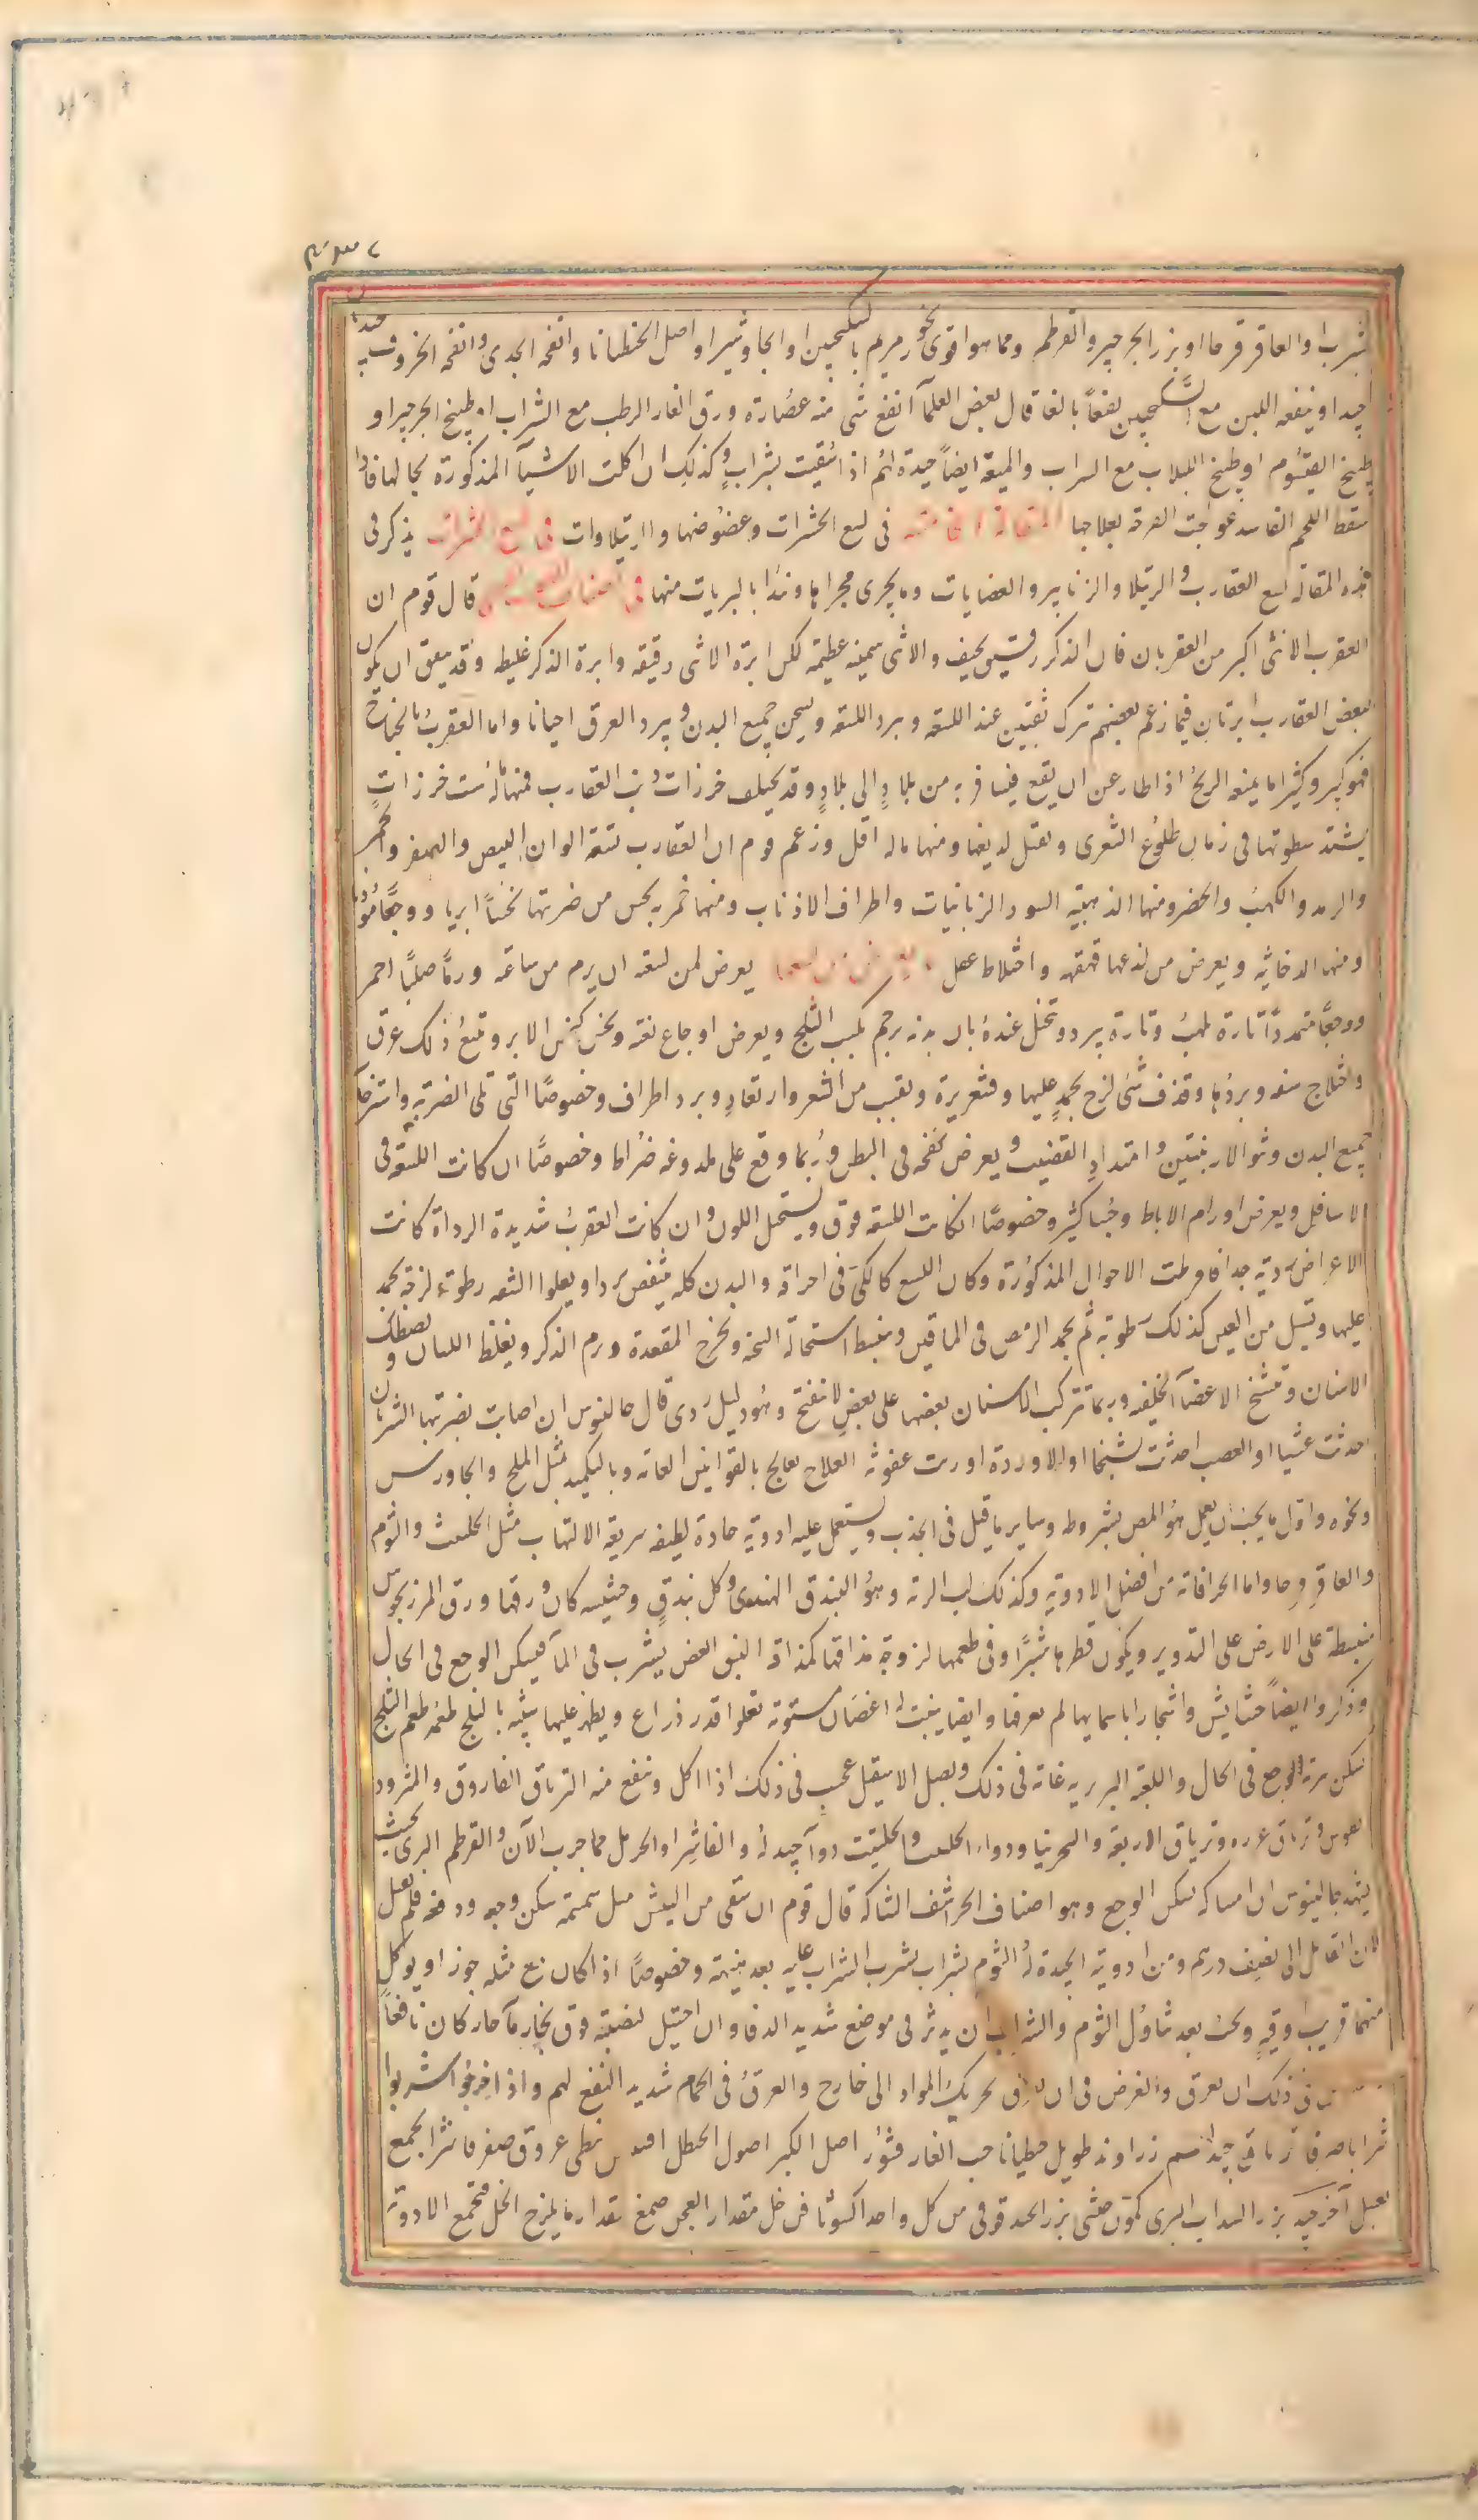 شراب او العاقرقرحا او بزر الجرجير والقرطم ومما هو اقوى بخور مريم بالسكنجبين او الجاوشير او اصل الخنطيانا وانفحة الجدي وانفحة الخروف
جيدا وينفعه اللبن مع السكنجبين نفعاً بالغا قال بعض العلمآ انفع شى منه عصارة ورق الغار الرطب مع الشراب او طبيخ الجرجير او
طبيخ القيسوم او طبيخ اللبلاب مع السراب والميعة ايضاً جيدة لهم اذا سقيت بشراب وكذلك ان اكلت الاشيآ المذكورة بحالها فاذا
سقط اللحم الفاسد عولجت القرحة بعلاجها المقالة الخامسة فى لسع الحشرات وعضوضها والرتيلاوات فى لسع الحشرات يذكر فى
هذه المقالة لسع العقارب والرتيلا والزنابير والعضايات وما يجرى مجراها ونبدا بالبريات منها قال قوم ان
العقرب الانثى اكبر من العقربان فان الذكر دقيق نحيف والانثى سمينة عظيمة لكن ابرة الانثى دقيقه وابرة الذكر غليظه وقد يتفق ان يكون
لبعض العقارب ابرتان فيما زعم بعضهم تترك ثقبتين عند اللسعه ويبرد اللسعه ويسخن جميع البدن ويبرد العرق احيانا واما العقرب بالجناح
فهو كبير وكثيرا ما يمنعه الريح اذا طار عن ان يقع فيسافر به من بلادٍ الى بلادٍ وقد يختلف خرزات ذنب العقارب فمنها ما له ست خرزاتٍ
يشتد سطوتها فى زمان طلوع الشعرى ويقتل لديغها ومنها ما له اقل وزعم قوم ان العقارب تسعة الوان البيض والصفر والحمر
والرمد والكهب والخضر ومنها الذهبية السود الزبانيات واطراف الاذناب ومنها خمرية يحس من ضربتها نخساً ابريا ووجعاً موذيا
ومنها الدخانيه ويعرض من لدغها قهقهه واختلاط عقل يعرض لمن لسعه ان يرم من ساعته ورماً صلباً احمر
ووجعاً متمدداً تارة يلهب وتارة يبرد وتخيل عنده بان بدنه يرجم بكبب الثلج ويعرض اوجاع بغتة ونخس كنخس الابر ويتبع ذلك عرق
واختلاج شفه وبردها وقذف شى لزج يجمد عليها وقشعريرة وتقبب من الشعر وارتعاد وبرد اطراف وخصوصاً التى تلى الضربة واسترخآ
جميع البدن ونتو الاربيتين وامتداد القضيب ويعرض نفخه فى البطن وربما وقع على ملدوغه ضراط وخصوصاً ان كانت اللسعه فى
الاسافل ويعرض اورام الاباط وجشا كثير وخصوصاً ان كانت اللسعه فوق ويستحيل اللون وان كانت العقرب شديدة الرداة كانت
الاعراض ردية جدا فافرطت الاحوال المذكورة وكان اللسع كالكى فى احراقه والبدن كله ينتفض بردا ويعلوا الشفه رطوبة لزجة تجمد
عليها وتسيل من العين كذلك رطوبة ثم يجمد الرمص فى الماقين وينبسط استحالة السحنه وتخرج المقعدة ويرم الذكر ويغلظ اللسان ويصطك
الاسنان وتشنج الاعضآ الخلفيه وربما تتركب الاسنان بعضها على بعض لا تنفتح وهو دليل ردى قال جالينوس ان اصابت بضربتها الشريان
احدثت غشيا او العصب احدثت تشنجا او الاوردة اورثت عفونه العلاج يعالج بالقوانين العامة وبالتكميد بمثل الملح والجاورس
ونحوه واول ما يجب ان يعمل هو المص بشروطه وساير ما قيل فى الجذب ويستعمل عليه ادوية حادة لطيفه سريعة الالتهاب مثل الحلتيت والثوم
والعاقرقرحا واما الخرافاته من افضل الادوية وكذلك لب الرته وهو البندق الهندى وكل بندق وحشيشه كان ورقها ورق المرزنجوش
منبسطة على الارض على التدوير ويكون قطرها شبراً وفى طعمها لزوجة مذاقها كمذاقه النبق الغض يشرب فى المآ فيسكن الوجع فى الحال
وذكروا ايضاً حشايش واشجارا باساميها لم نعرفها وايضا ينبت له اغصان مستوية تعلوا قدر ذراع ويظهر عليها شبيه بالبلح طعمه طعم البلح
يسكن الوجع فى الحال واللعبة البربريه غاية فى ذلك وبصل الاسقيل عجيب فى ذلك اذا اكل وينفع منه الترياق الفاروق والمثرود
يطوس وترياق عزره وترياق الاربعة والسجزنيا ودواء الحلتيت والحلتيت دوآ جيد له والفاشرا والحرمل مما جرب الآن والقرطم البرى بحيث
يشهد جالينوس ان امساكه يسكن الوجع وهو اصناف الحرشف الشاكه قال قوم ان سقى من البيش مثل سمسمة سكن وجعه ودفعه فلم يفعل
لان القاتل الى نصف درهم ومن ادوية الجيدة له الثوم بشراب يشرب الشراب عليه بعد هنيهة وخصوصاً اذا كان مع مثله جوز او يوكل
منهما قريب اوقيه ويجب بعد تناول الثوم والشراب ان يدثر فى موضع شديد الدفا وان احتيل لنصبته فوق بخار مآ حار كان نافعاً
فى ذلك ان يعرق والغرض فى ان يعرق تحريك المواد الى خارج والعرق فى الحمام شديد النفع لهم واذا خرجوا اشربوا
شرابا صرفا ترياق جيد زراوند طويل جنطيانا حب الغار قشور اصل الكبر اصول الحنظل نبطى عروق صفر فاشرا يجمع
بعسل آخر جيد بزر السداب البرى كمون حبشى بزر الحندقوقى من كل واحد اكسوثافن خل مقدار العجن صمغ بقدار ما يلزج الخل فتجمع الادوية